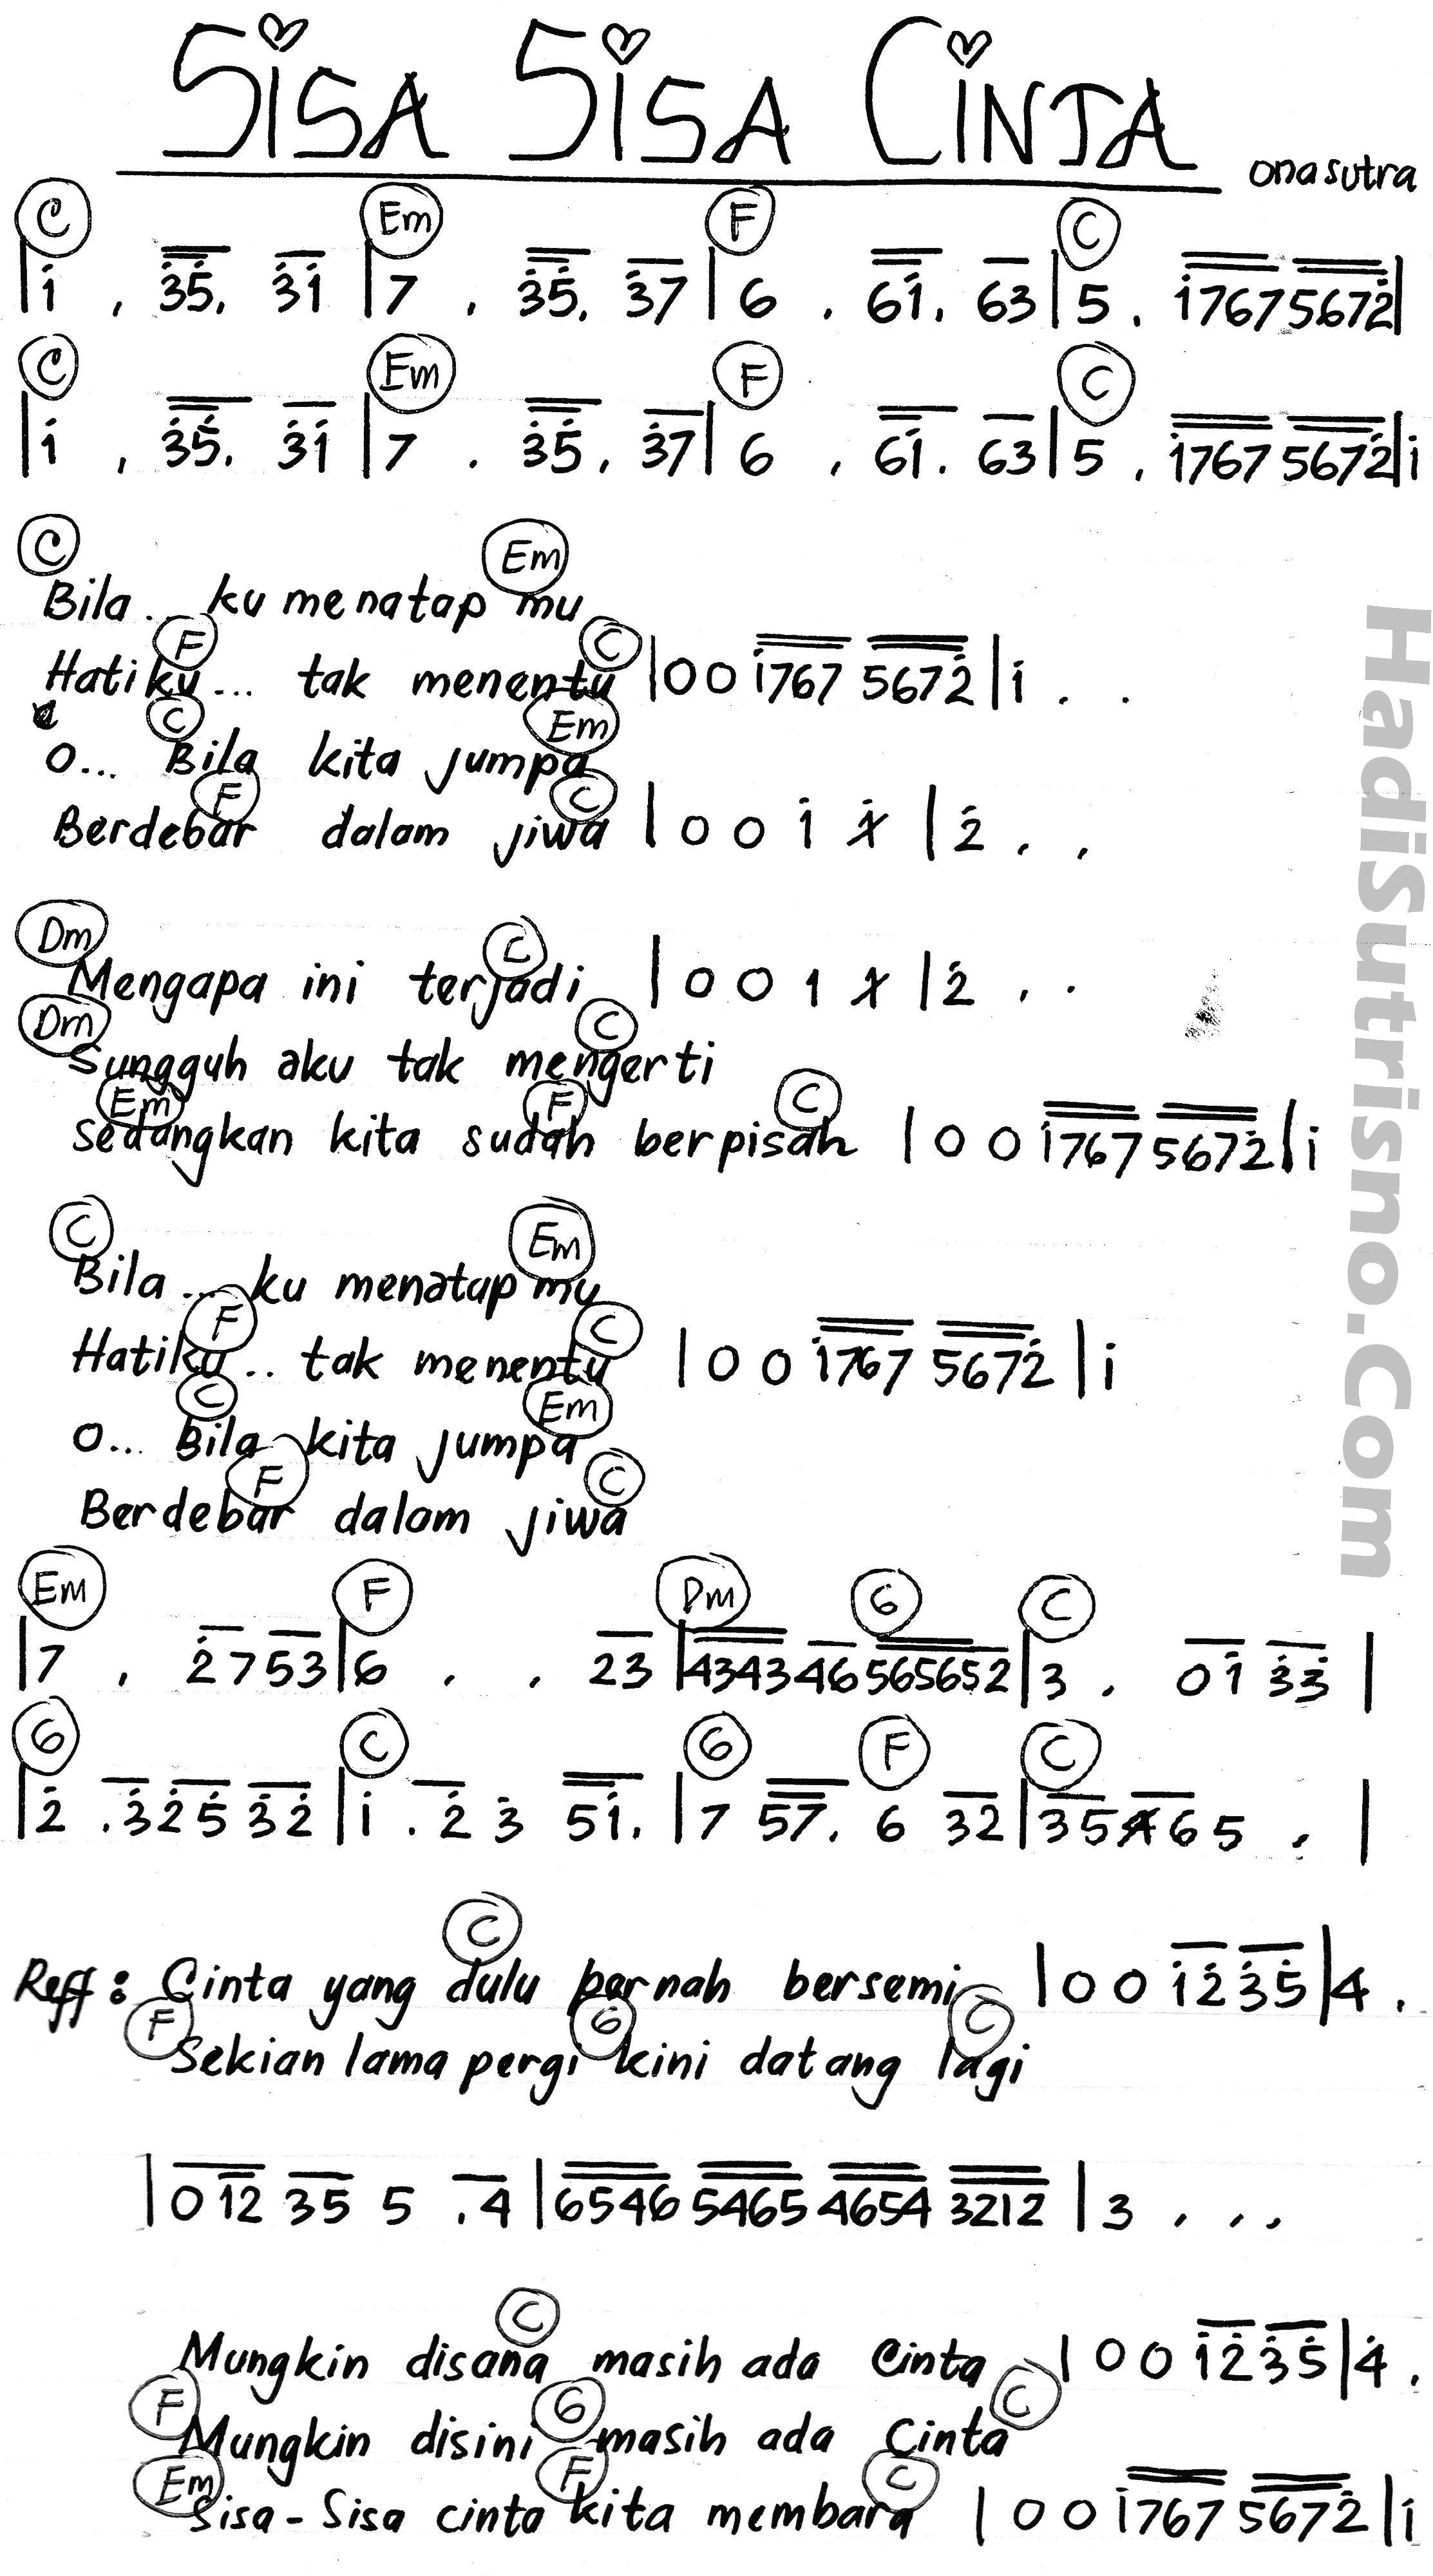 SiSA SiSA CiNTA
ona sutra
C Em F C
| i̇ . 3̇5̇. 3̇i̇ | 7 . 3̇5̇. 3̇7 | 6 . 6i̇. 63 | 5 . i̇767 5672̇ |
C Em F C
| i̇ . 3̇5̇. 3̇i̇ | 7 . 3̇5̇. 3̇7 | 6 . 6i̇. 63 | 5 . i̇767 5672̇ | i
C Em
Bila... ku menatap mu
F C
Hatiku... tak menentu | 0 0 i̇767 5672̇ | i . .
C Em
o... Bila kita jumpa
F C
Berdebar dalam jiwa | 0 0 i̇ i̸ | 2̇ . .
Dm C
Mengapa ini terjadi | 0 0 1 1̸ | 2̇ . .
Dm C
Sungguh aku tak mengerti
Em F C
sedangkan kita sudah berpisah | 0 0 i̇767 5672̇ | i
C Em
Bila... ku menatap mu
F C
Hatiku.. tak menentu | 0 0 i̇767 5672̇ | i
C Em
o... Bila kita jumpa
F C
Berdebar dalam jiwa
Em F Dm G C
| 7 . 2̇753 | 6 . . 23 | 4343 46 565652 | 3 . 0i̇ 3̇3̇ |
G C G F C
| 2̇ .3̇ 2̇5̇ 3̇2̇ | i . 2̇ 3̇ 5i̇. | 7 57. 6 32 | 35 4̸6 5 . |
C
Reff : Cinta yang dulu pernah bersemi | 0 0 i̇2̇ 3̇5̇ | 4 .
F G C
Sekian lama pergi kini datang lagi
| 0 12 35 5 .4 | 6546 5465 4654 3212 | 3 . . .
C
Mungkin disana masih ada cinta | 0 0 i̇2̇ 3̇5̇ | 4̇ .
F G C
Mungkin disini masih ada cinta
Em F C
Sisa-Sisa cinta kita membara | 0 0 i̇767 5672̇ | i
HadiSutrisno.Com